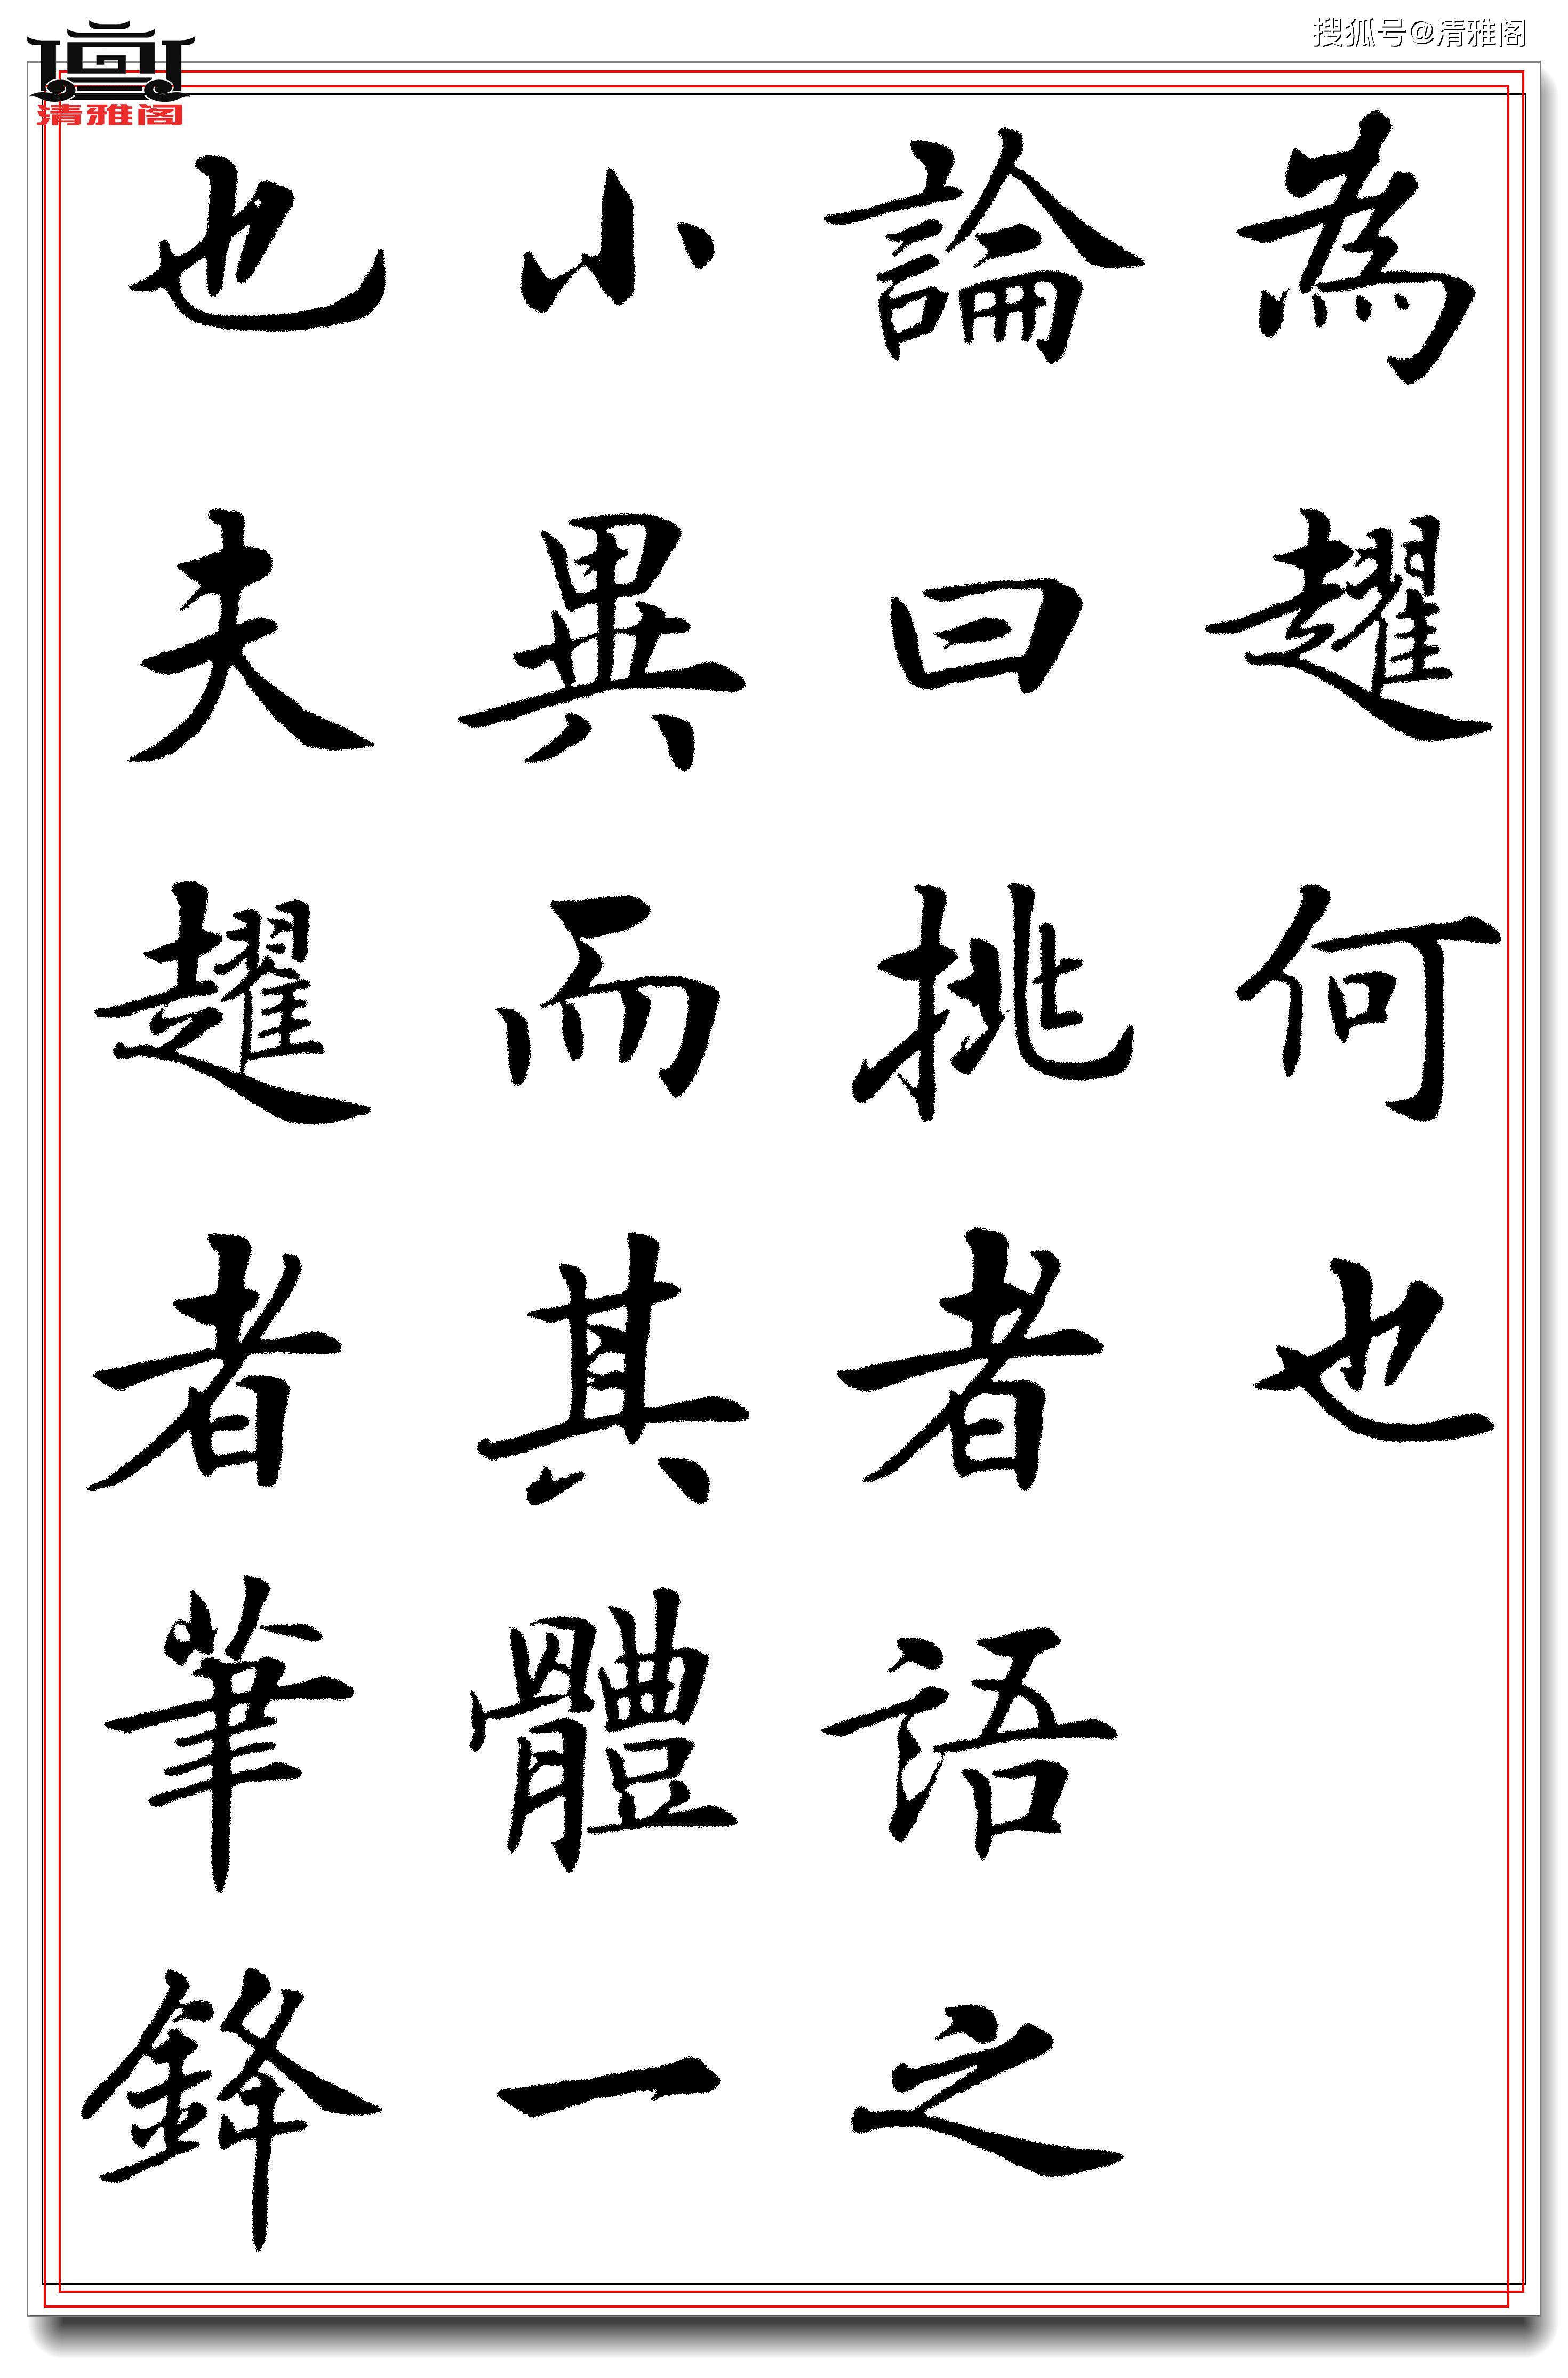 搜狐号@清雅阁
清雅阁
為趯何也
論曰挑者語之
小異而其體一
也夫趯者筆鋒